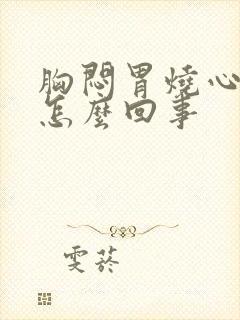 胸悶胃燒心
怎麼回事
雯菸